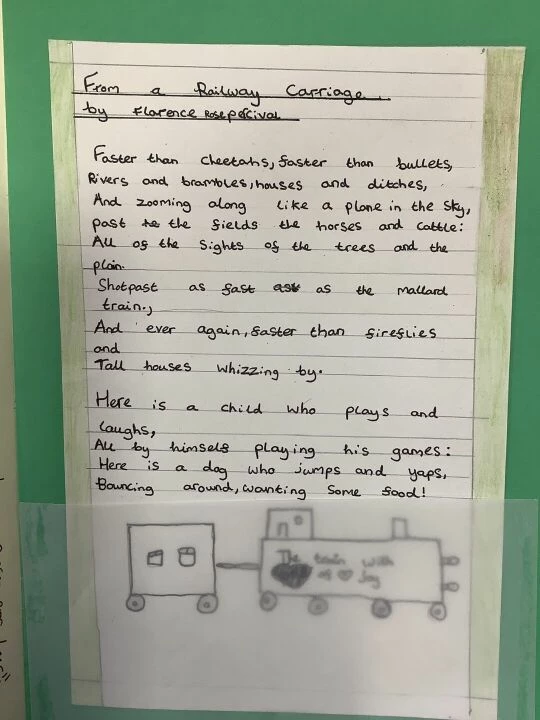 From a Railway Carriage.
by Florence Rose percival
Faster than cheetahs, faster than bullets,
Rivers and brambles, houses and ditches,
And zooming along like a plane in the sky,
past the the fields the horses and cattle:
All of the Sights of the trees and the
plain.
Shotpast as fast ask as the mallard
train.,
And ever again, faster than fireflies
and
Tall houses whizzing by.
Here is a child who plays and
laughs,
All by himself playing his games:
Here is a dog who jumps and yaps,
Bouncing around, wanting some food!
The train with
of ♥ Joy